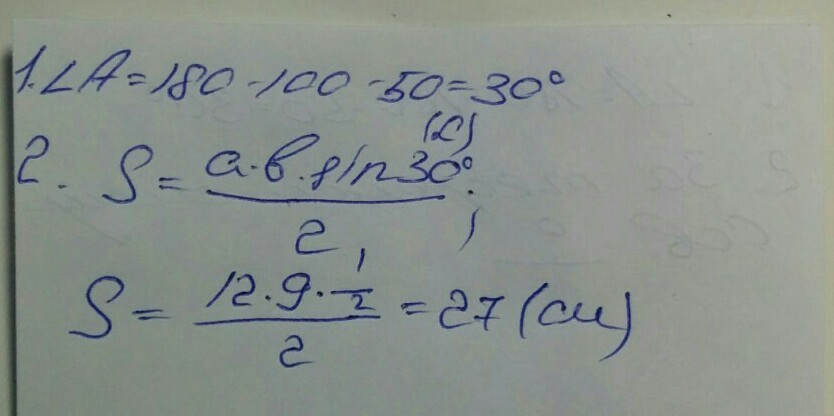 1. ∠A = 180 - 100 - 50 = 30°
2. S = (a · в · sin 30° (α)) / 2 ;
S = (12 · 9 · 1/2) / 2 = 27 (см)